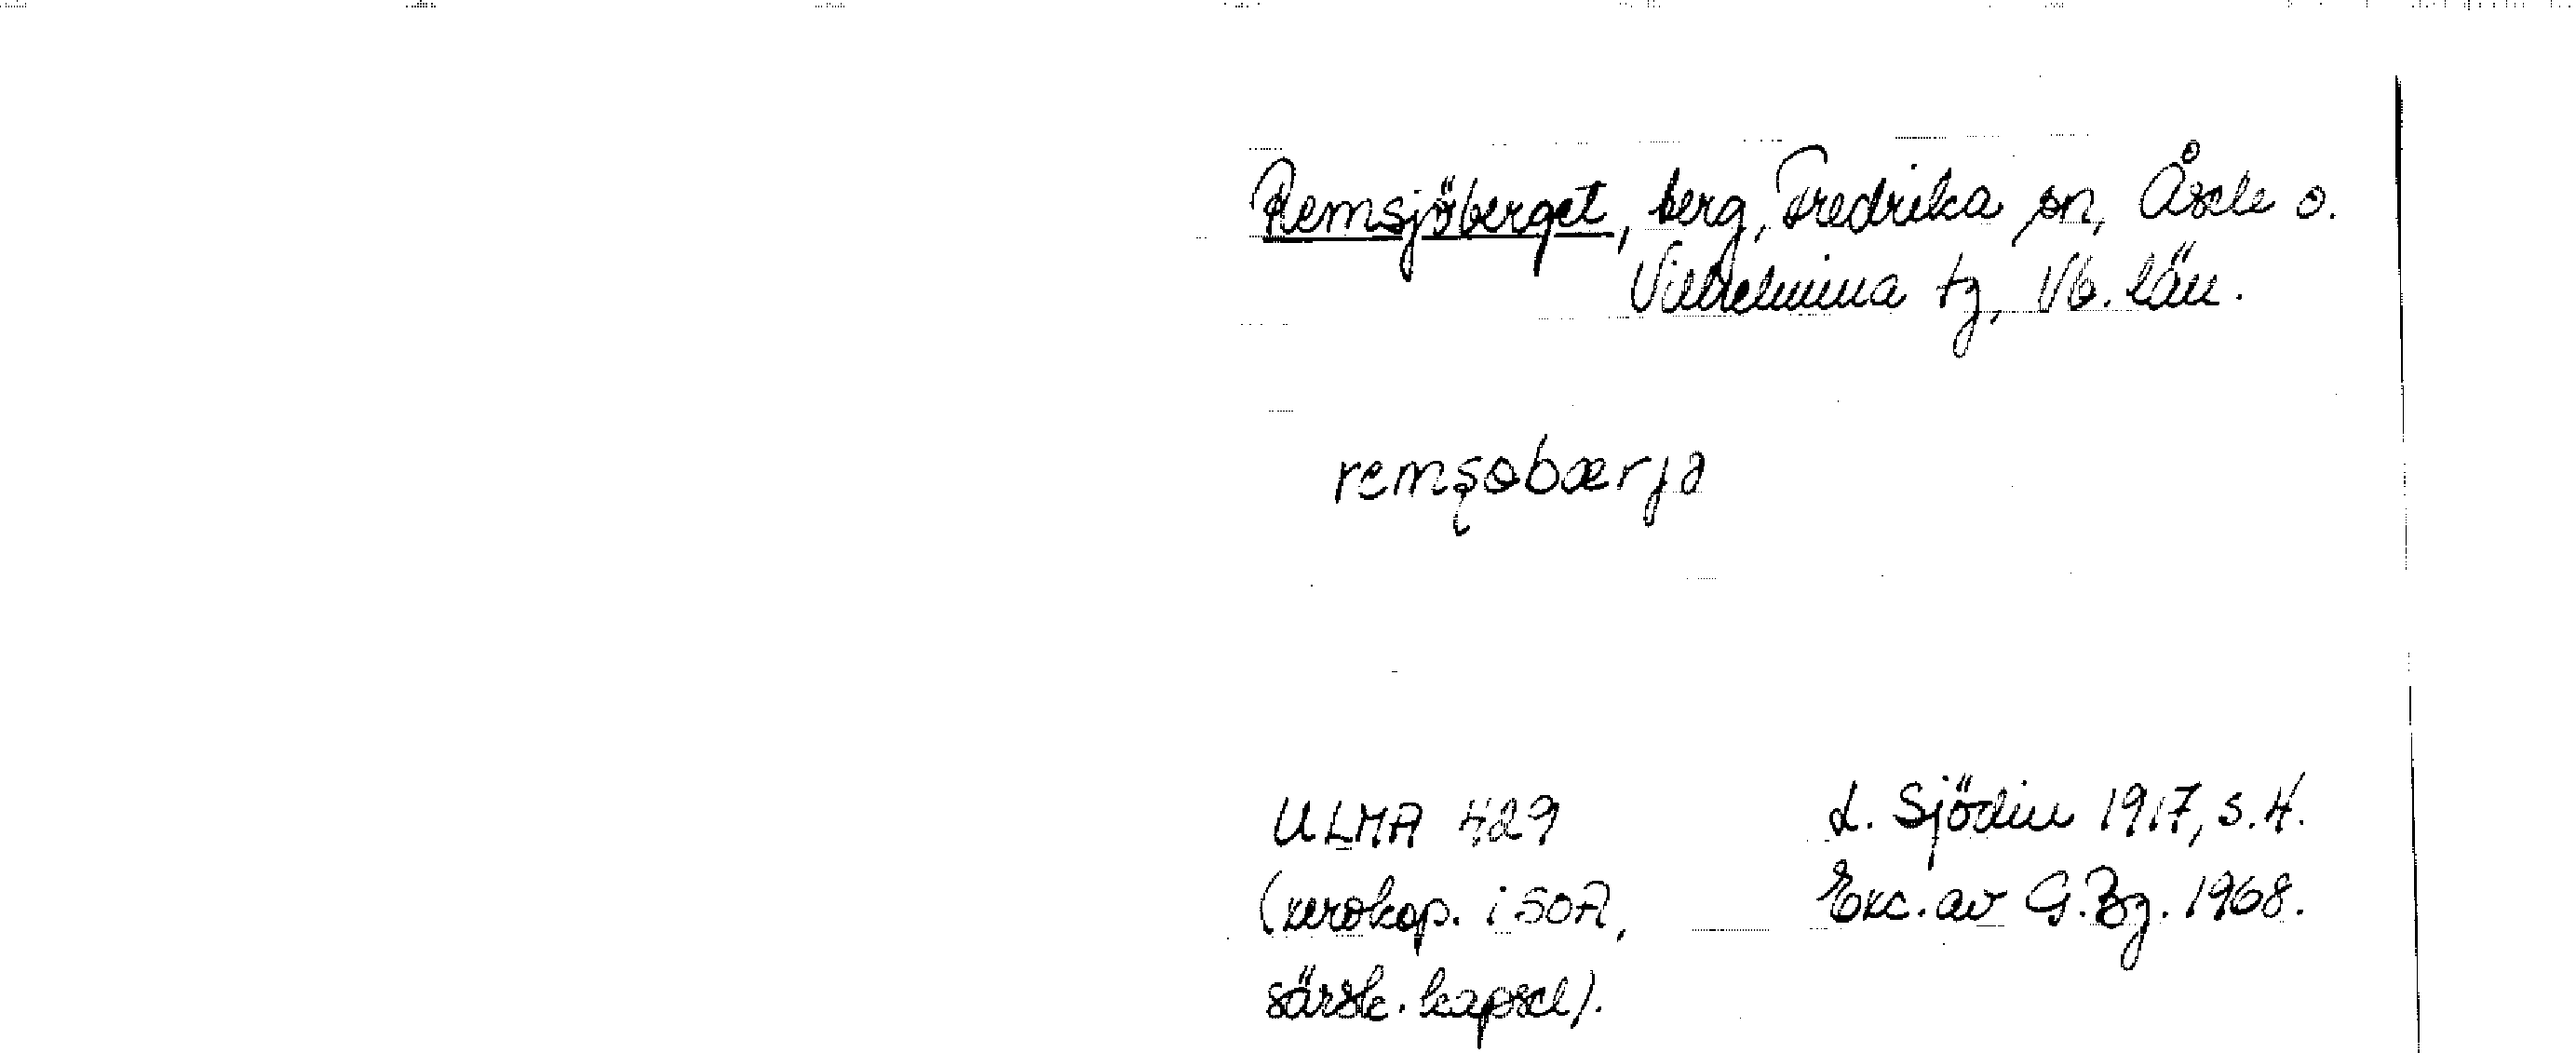 Remsjöberget, berg, Fredrika sn, Åsele o.
Vilhelmina tg, Vb. län.
remʂobærjə
ULMA 429
(xerokop. i SOA,
särsk. kapsel).
L. Sjödin 1917, s. 4.
Exc. av G. Bg. 1968.